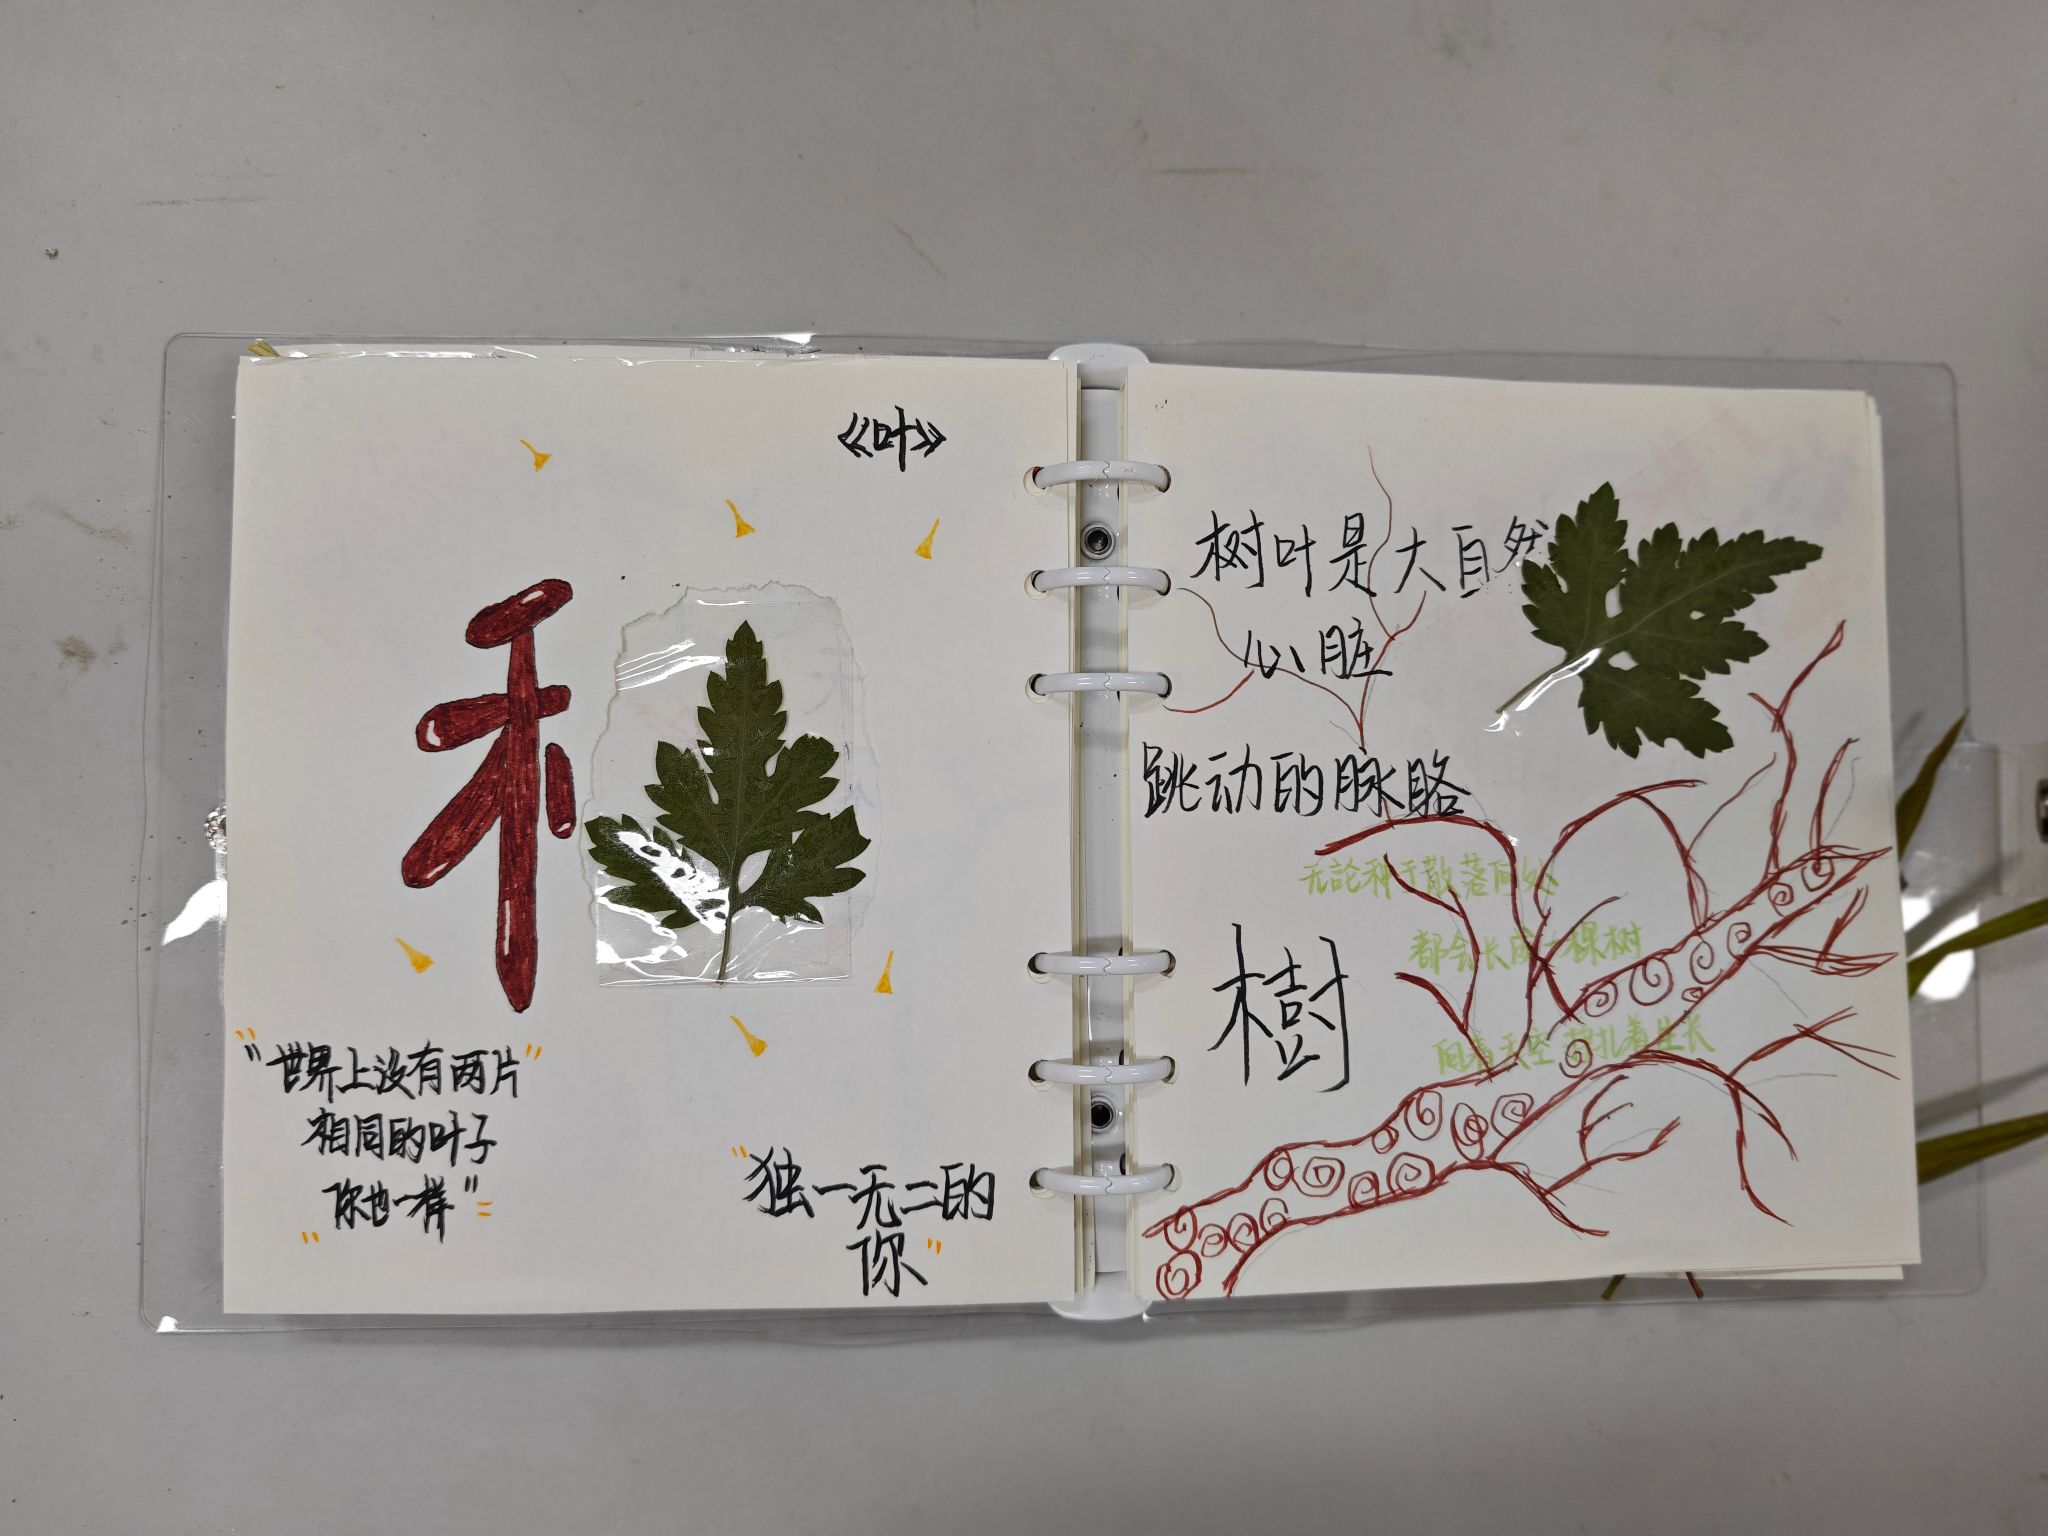 《叶》
禾
"世界上没有两片
相同的叶子
你也一样"
"独一无二的
你"
树叶是大自然
心脏
跳动的脉胳
无論种于散落何处
都会长成一棵树
向着天空 挣扎着生长
樹